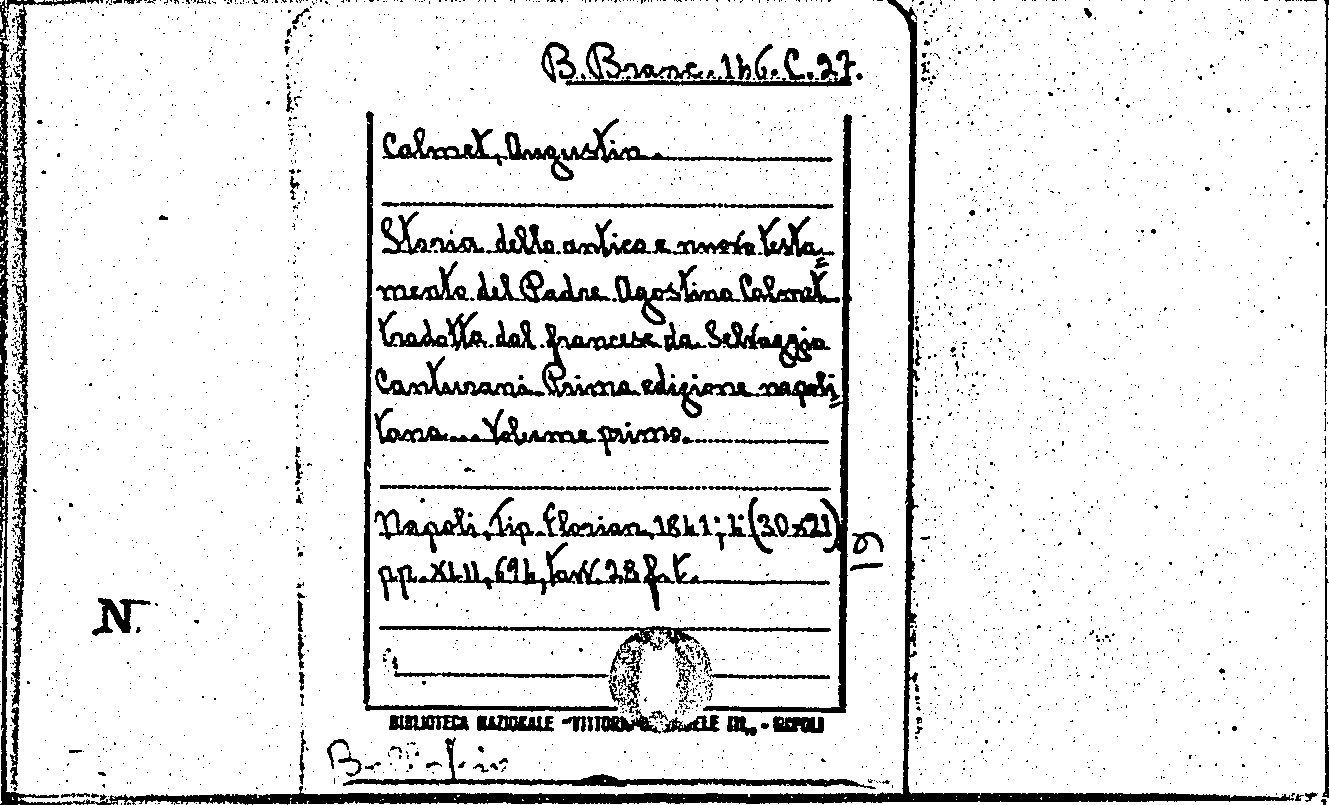 B. Branc. 146. C. 27.
Calmet, Augustin.
Storia dello antico e nuovo testa=
mento del Padre Agostino Calmet
tradotta dal francese da Selvaggio
Canturani Prima edizione napoli=
tana... Volume primo.
Napoli, Tip. Florian, 1841; 4° (30x21)
pp. XLII, 694, tavv. 28 f. t.
N.
BIBLIOTECA NAZIONALE "VITTORIO EMANUELE III" - NAPOLI